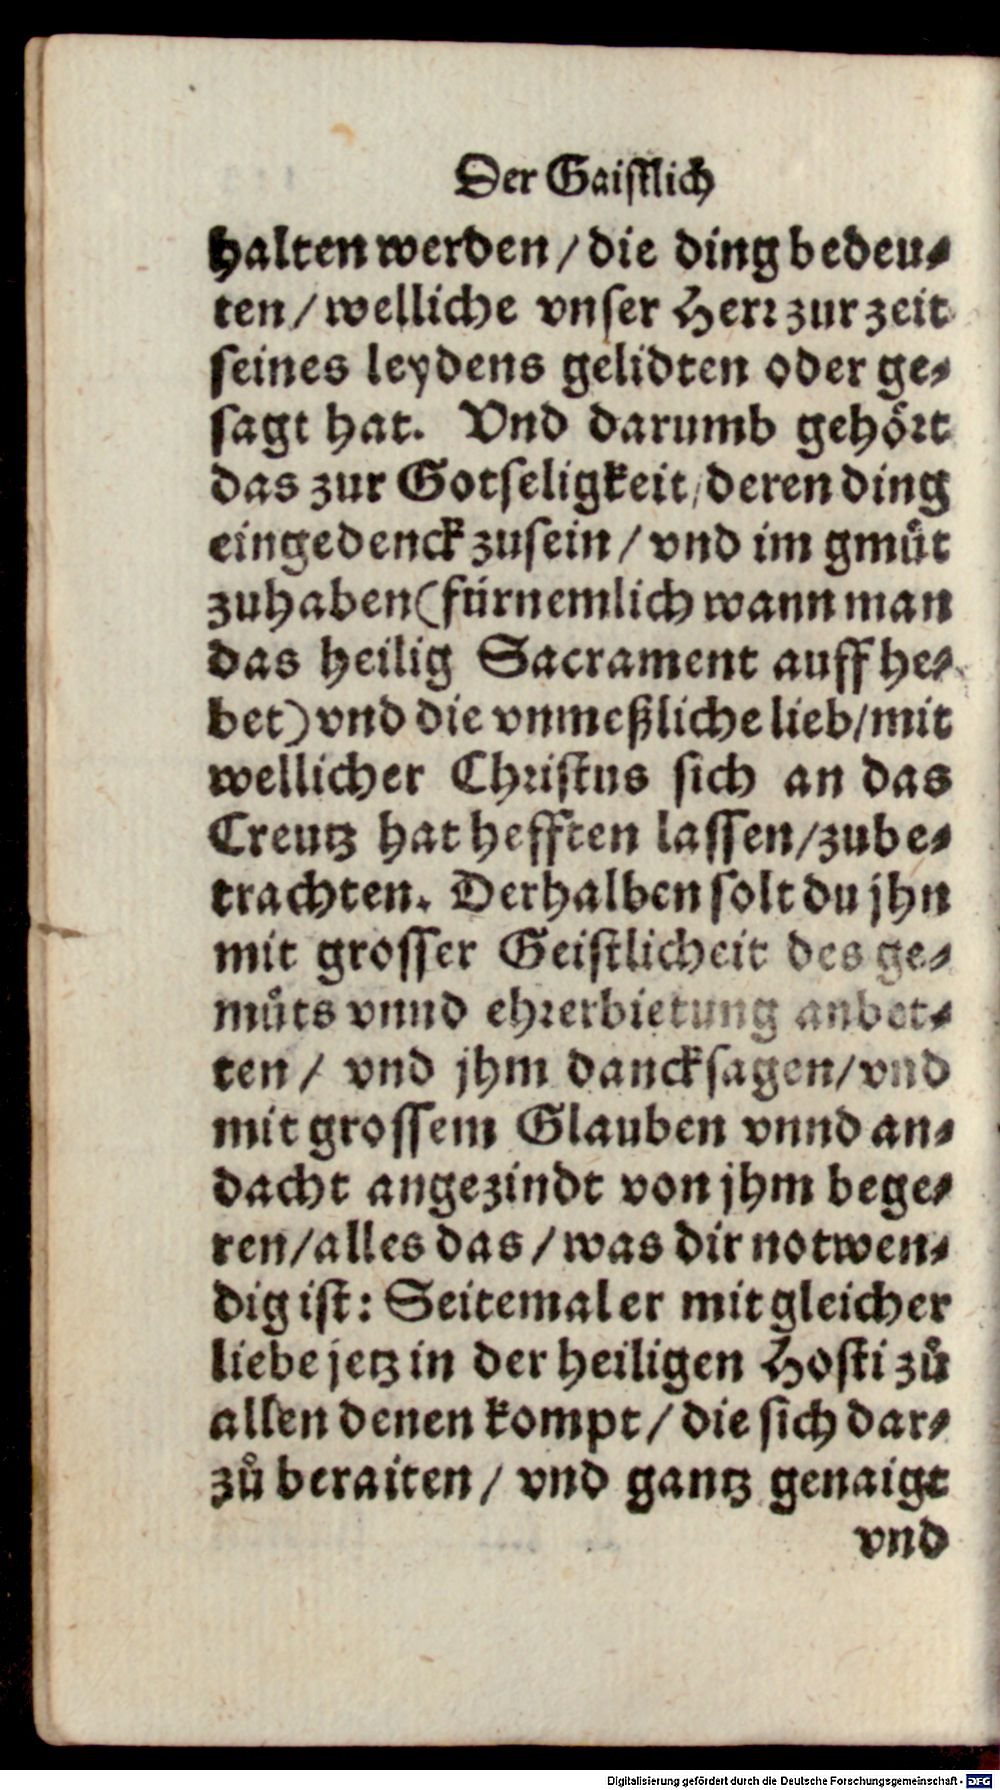 Der Gaiſtlich
halten werden / die ding bedeu⸗
ten / welliche vnſer Herꝛ zur zeit
ſeines leydens gelidten oder ge⸗
ſagt hat. Vnd darumb gehoͤꝛt
das zur Gotſeligkeit / deren ding
eingedenck zuſein / vnd im gmuͤt
zuhaben (fürnemlich wann man
das heilig Sacrament auff he⸗
bet) vnd die vnmeßliche lieb / mit
wellicher Chꝛiſtus ſich an das
Creutz hat hefften laſſen / zube⸗
trachten. Derhalben ſolt du jhn
mit groſſer Geiſtlicheit des ge⸗
muͤts vnnd ehꝛerbietung anbet⸗
ten / vnd jhm danckſagen / vnd
mit groſſem Glauben vnnd an⸗
dacht angezindt von jhm bege⸗
ren / alles das / was dir notwen⸗
dig iſt: Seitemal er mit gleicher
liebe jetz in der heiligen Hoſti zuͦ
allen denen kompt / die ſich dar⸗
zuͦ beraiten / vnd gantz genaigt
vnd
Digitalisierung gefördert durch die Deutsche Forschungsgemeinschaft - DFG